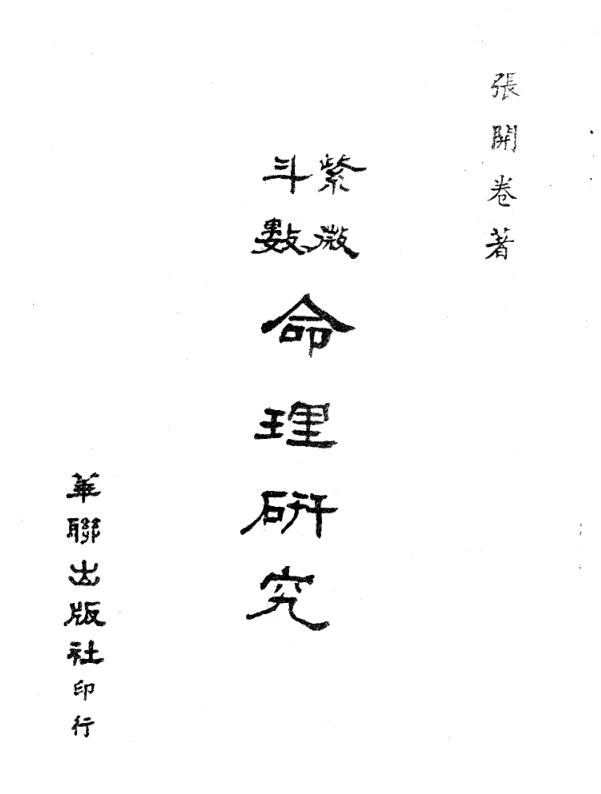 張開卷著
紫微
斗數
命理研究
華聯出版社印行